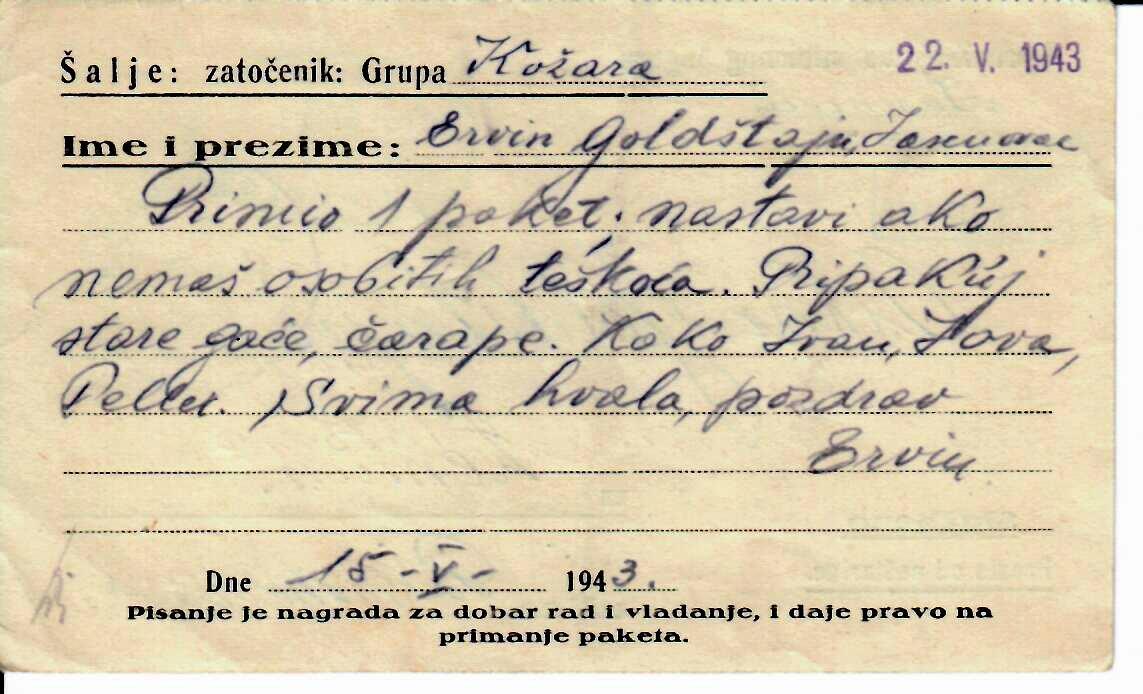 Šalje: zatočenik: Grupa Kožara
22. V. 1943
Ime i prezime: Ervin Goldštajn, Jasenovac
Primio 1 paket, nastavi ako
nemaš osobitih teškoća. Pripakuj
stare gaće, čarape. Kako Ivan,
Svima hvala, pozdrav
Ervin
Dne 15-V- 1943.
Pisanje je nagrada za dobar rad i vladanje, i daje pravo na
primanje paketa.